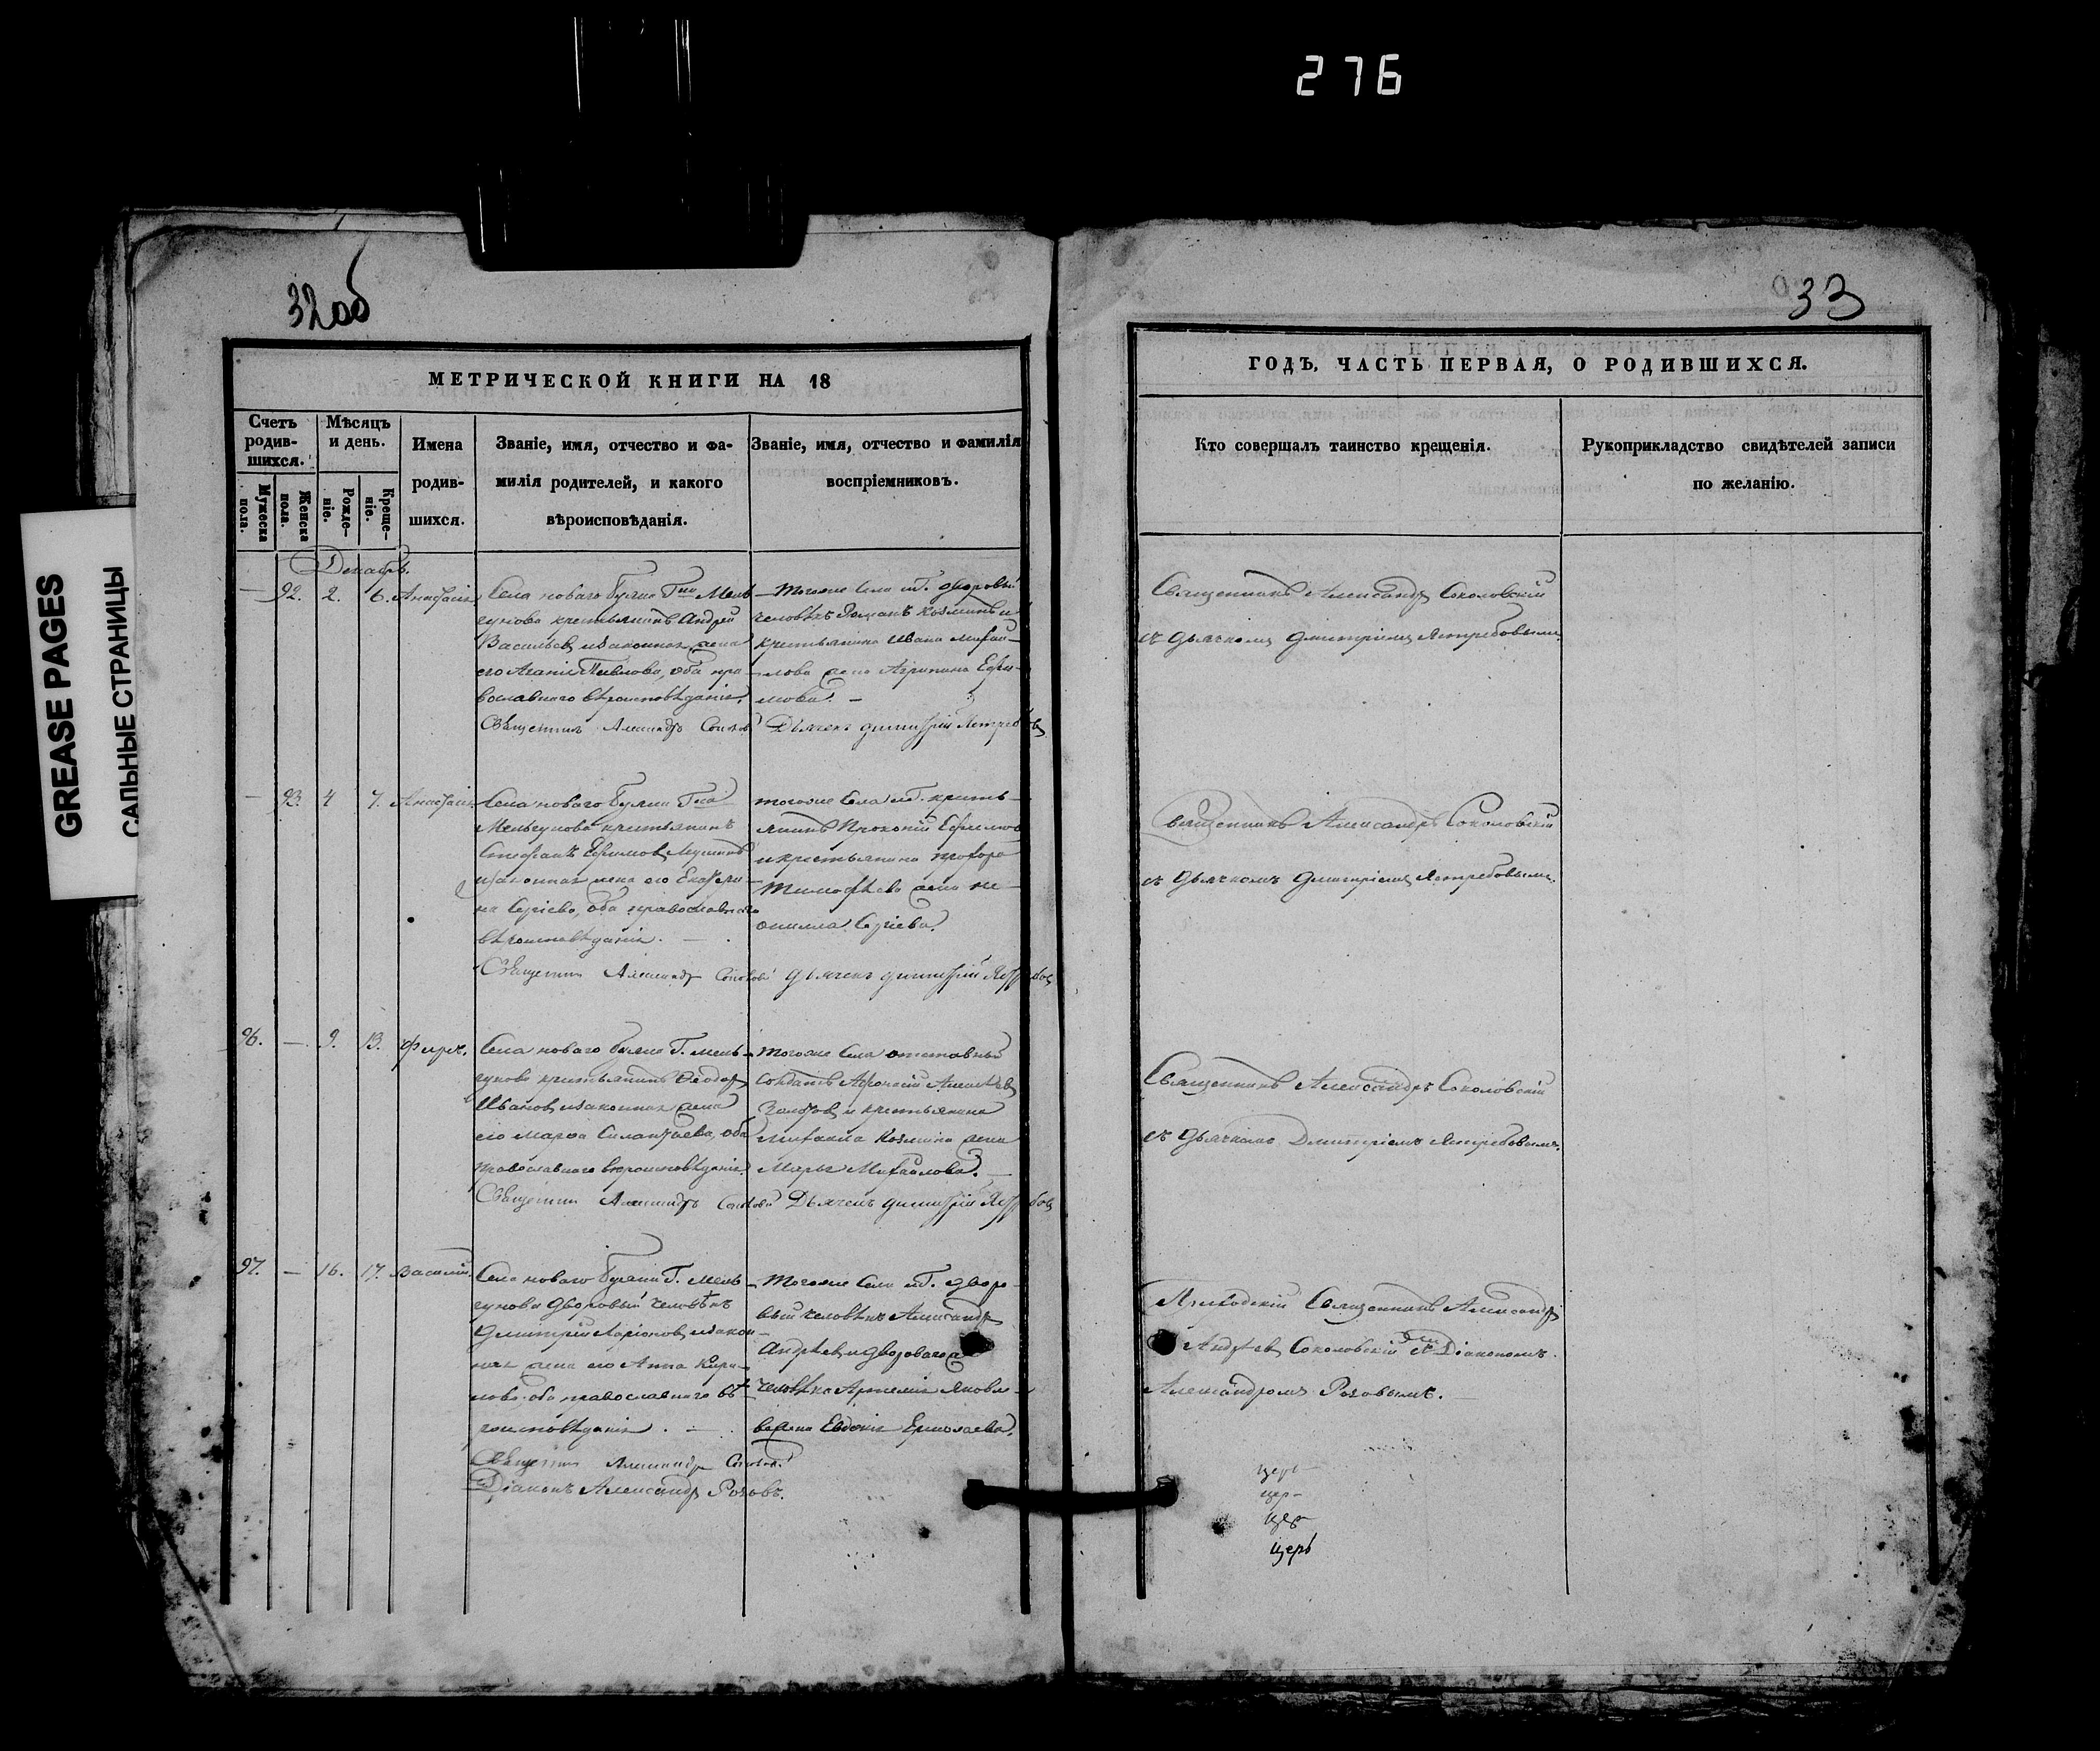 276
32 об
33
МЕТРИЧЕСКОЙ КНИГИ НА 18
ГОДЪ, ЧАСТЬ ПЕРВАЯ, О РОДИВШИХСЯ.
GREASE PAGES
САЛЬНЫЕ СТРАНИЦЫ
Счетъ родив-шихся.
Мужеска пола.
Женска пола.
Мѣсяцъ и день.
Рожде-ніе.
Креще-ніе.
Имена родив-шихся.
Званіе, имя, отчество и фа-
милія родителей, и какого
вѣроисповѣданія.
Званіе, имя, отчество и фамилія
воспріемниковъ.
Кто совершалъ таинство крещенія.
Рукоприкладство свидѣтелей записи
по желанію.
Декабрь.
— 92. 2. 6. Анастасія
Села новаго Буяна Гна Мель-
гунова крестьянинъ Андрей
Васильевъ и законная жена
его Павлова, оба пра-
вославнаго вѣроисповѣданія.
Священникъ Александръ
Тогоже села и Г. дворовый
человѣкъ Романъ Козминъ и
крестьянина Ивана Михай-
лова жена Агрипина Ефи-
мова. —
Дьячекъ Димитрій Ястребовъ
Священникъ Александръ Соколовскій
съ дьячкомъ Дмитріемъ Ястребовымъ
— 93. 4 7. Анастасія
Села новаго Буяна Гна
Мельгунова крестьянинъ
Стефанъ Ефимовъ
и законная жена его Екатери-
на Сергіева, оба православнаго
вѣроисповѣданія. —
Священникъ Александръ
тогоже села и Г. кресть-
янинъ Прокопій Ефимовъ
и крестьянина Прохора
Тимофѣева жена Не-
онилла Сергіева.
Дьячекъ Димитрій Ястребовъ
Священникъ Александръ Соколовскій
съ дьячкомъ Дмитріемъ Ястребовымъ.
96. — 9. 13. Фирсъ.
Села новаго Буяна Г. Мель-
гунова крестьянинъ Ѳеодоръ
Ивановъ и законная жена
его Марѳа Силантьева, оба
православнаго вѣроисповѣданія.
Священникъ Александръ
тогоже села отставный
солдатъ Алексѣевъ
и крестьянина
Михаила Козмина жена
Марья Михайлова. —
Дьячекъ Димитрій Ястребовъ
Священникъ Александръ Соколовскій
съ дьячкомъ Дмитріемъ Ястребовымъ.
97. — 16. 17. Василій.
Села новаго Буяна Г. Мель-
гунова дворовый человѣкъ
Дмитрій Ларіоновъ и закон-
ная жена его Анна Кири-
лова оба православнаго вѣ-
роисповѣданія. —
Священникъ Александръ
Діаконъ Александръ Розовъ.
Тогоже села и Г. дворо-
вый человѣкъ Александръ
Андрѣевъ и двороваго
человѣка Артемія Яковле-
ва жена Евдокія Ермолаева.
Приходскій Священникъ Александръ
Андрѣевъ Соколовскій съ Діакономъ
Александромъ Розовымъ. —
церь
цер-
цер
церь